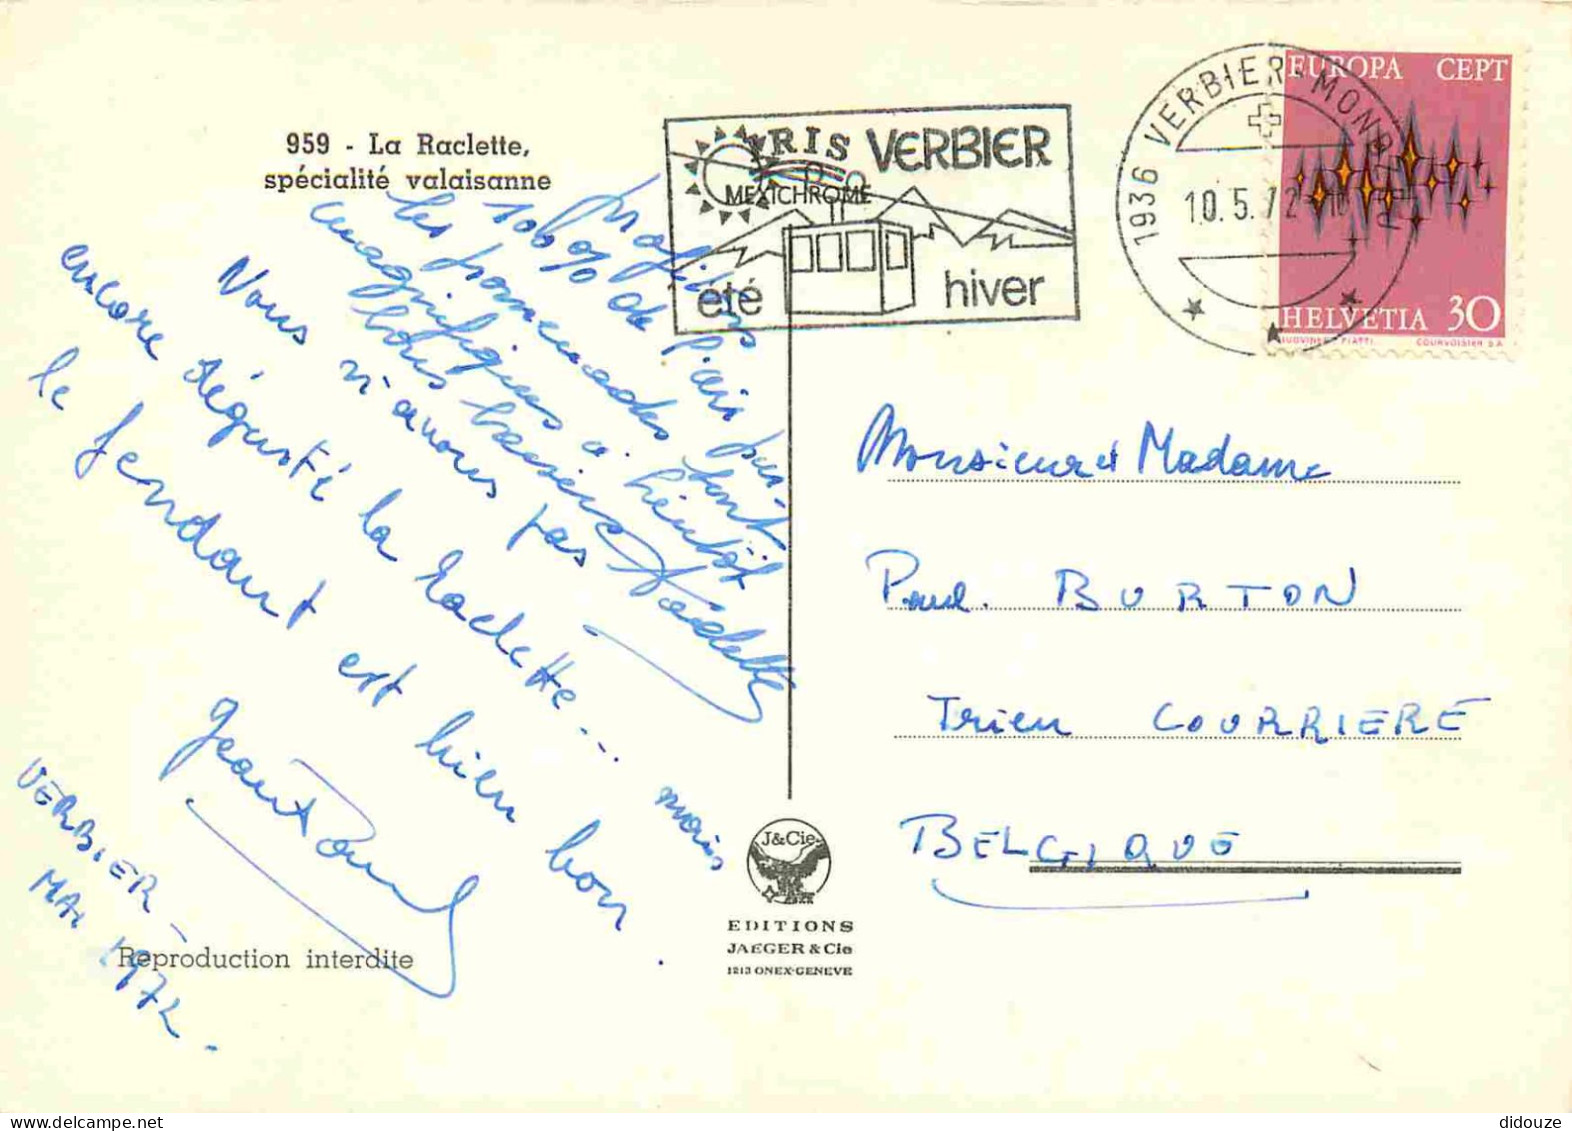 959 - La Raclette,
spécialité valaisanne
IRIS VERBIER
MEXICHROME
été hiver
1936 VERBIER-MON
10.5.72
EUROPA CEPT
HELVETIA 30
PIATTI COURVOISIER S.A.
Nous n'avons pas
encore dégusté la Raclette... mais
le fendant est bien bon.
Jean Paul
VERBIER -
MAI 1972.
Profitons
100% de l'air pur.
les promenades sont
magnifiques à bientôt
bons baisers
Monsieur et Madame
Paul BURTON
Trieu COURRIERE
BELGIQUE
J&Cie
EDITIONS
JAEGER & Cie
1213 ONEX-GENEVE
Reproduction interdite
didouze